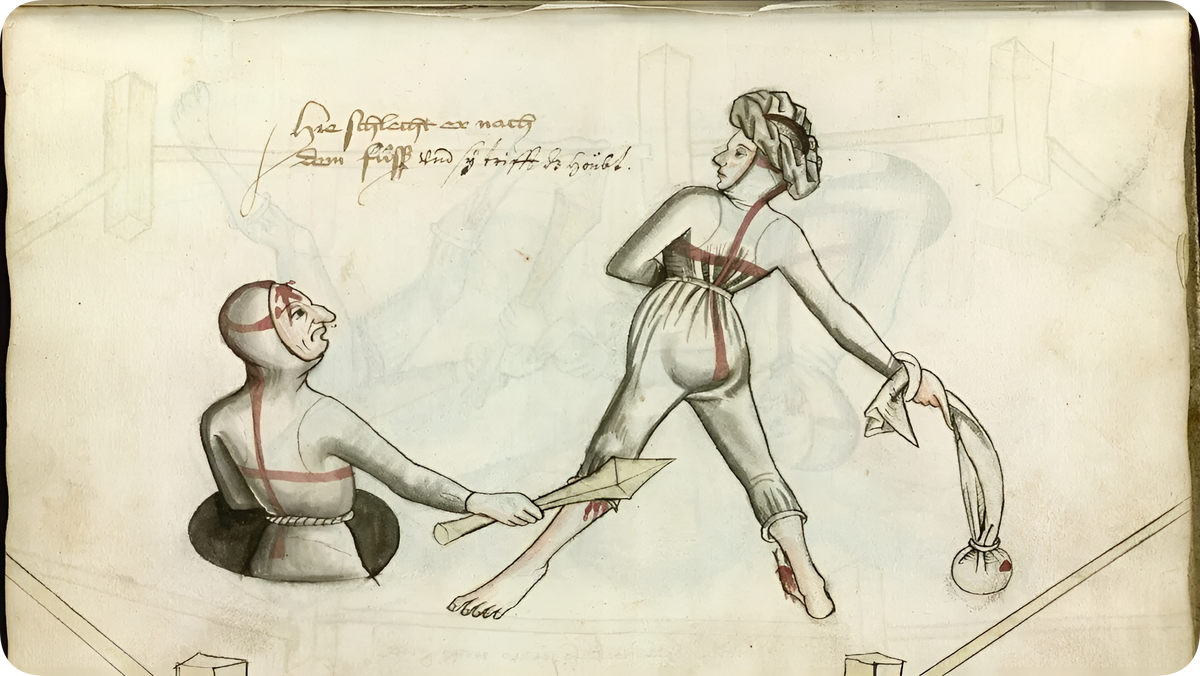 Hie schlecht er nach
dem füß vnd sÿ trifft dz höubt.